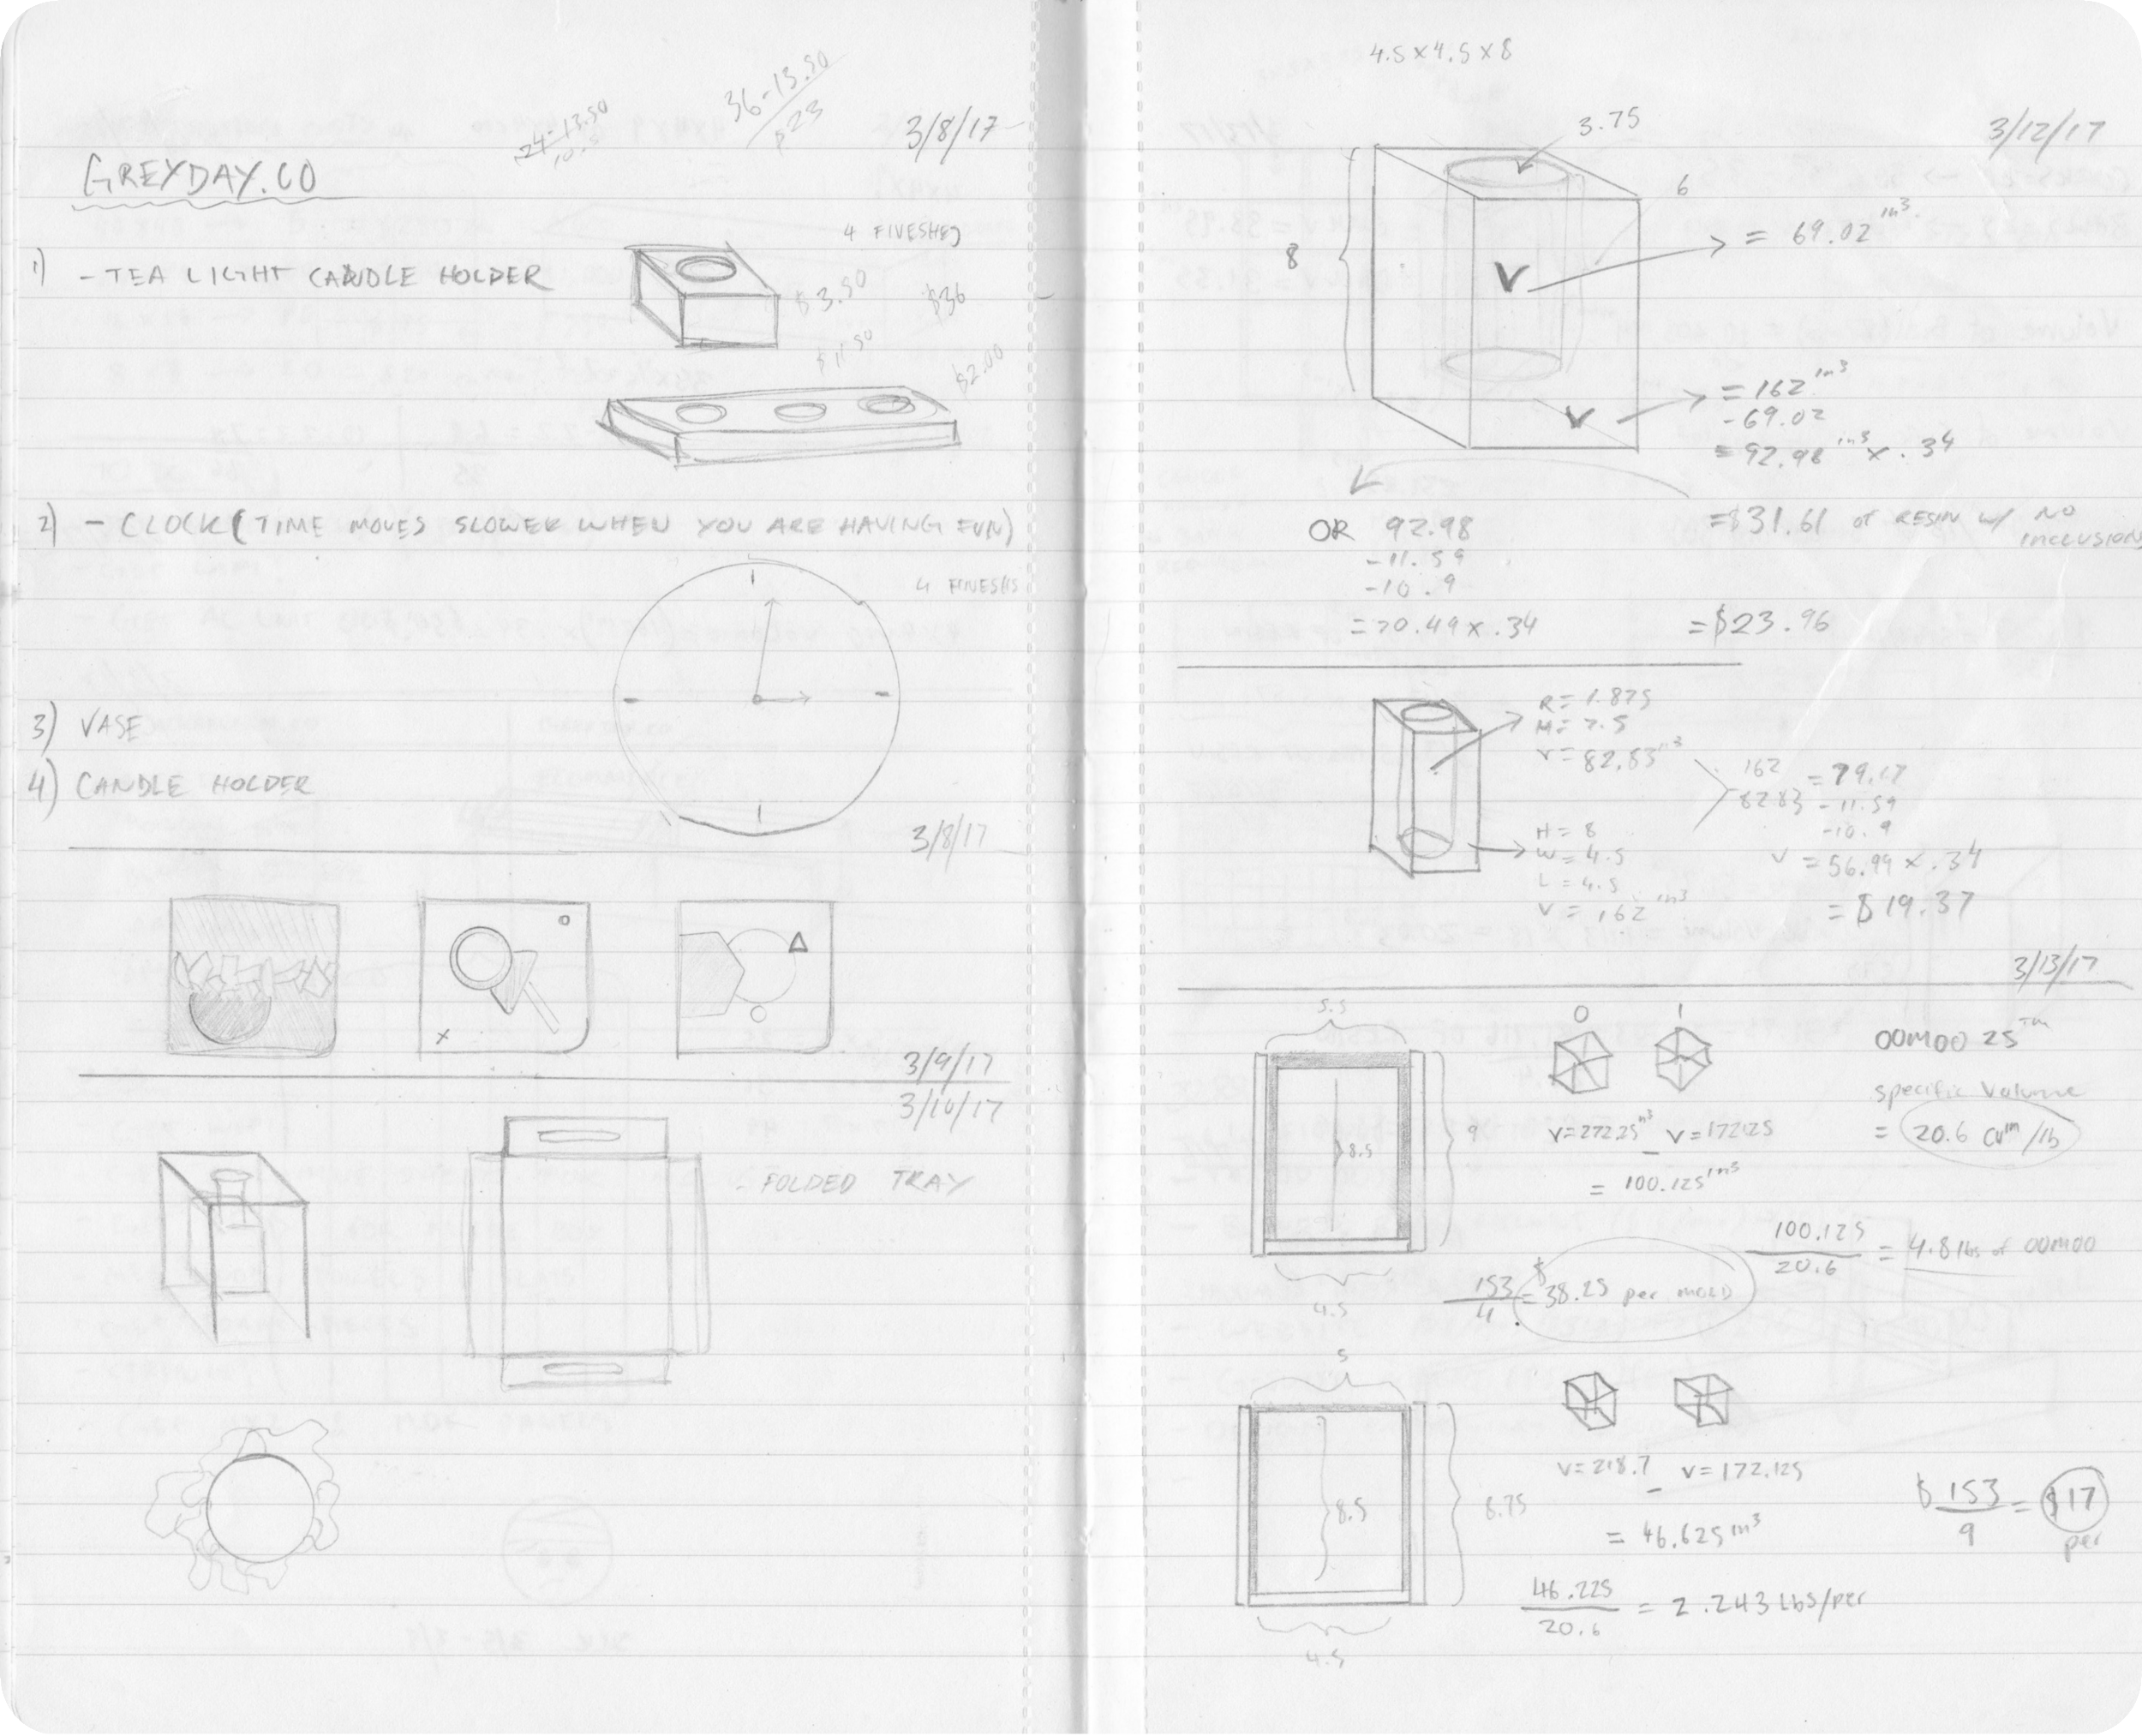 24-13.50
10.5
36-13.50
$23
3/8/17
GREYDAY.CO
4 FINESHES
1) - TEA LIGHT CANDLE HOLDER
$3.50
$36
$2.00
2) - CLOCK (TIME MOVES SLOWER WHEN YOU ARE HAVING FUN)
3) VASE
4) CANDLE HOLDER
3/8/17
x
3/9/17
3/10/17
- FOLDED TRAY
4.5 x 4.5 x 8
3.75
3/12/17
6
8
V
= 69.02 in³
V
= 162 in³
-69.02
= 92.98 in³ x .34
OR 92.98
-11.59
-10.9
= 70.49 x .34
= $23.96
=$31.61 of RESIN w/ NO
INCLUSIONS
R = 1.875
H = 7.5
V = 82.83 in³
162
8283
= 79.17
-11.59
-10.9
V = 56.99 x .34
= $19.37
H = 8
W = 4.5
L = 4.5
V = 162 in³
3/13/17
5.5
8.5
9
4.5
0
1
V=272.25 in³ - V=172125
= 100.125 in³
OOMOO 25 ™
specific Volume
= 20.6 cu in/lb
100.125
20.6
= 4.8 lbs of OOMOO
153
4
= $38.25 per MOLD
5
8.5
8.75
4.5
V=218.7 - V=172.125
= 46.625 in³
46.225
20.6
= 2.243 Lbs/per
$153
9
= $17
per